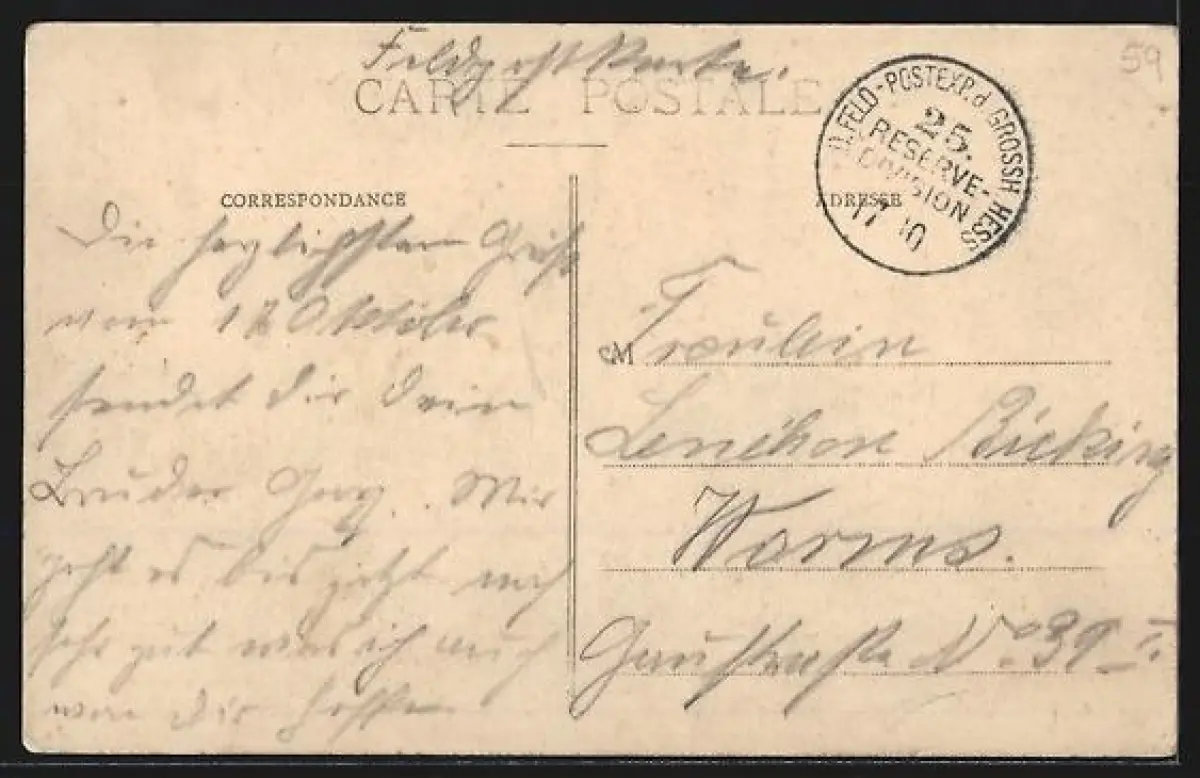 Feldpostkarte.
CARTE POSTALE
59
D. FELD-POSTEXP. d. GROSSH. HESS
25.
RESERVE-
DIVISION
17 10
CORRESPONDANCE
ADRESSE
Die herzlichsten Grüße
vom 17 Oktober
sendet dir dein
Bruder Georg. Mir
geht es bis jetzt noch
sehr gut was ich auch
von dir hoffe
M Fräulein
Lenchen Bicking
Worms.
Gaustraße No 39 I.